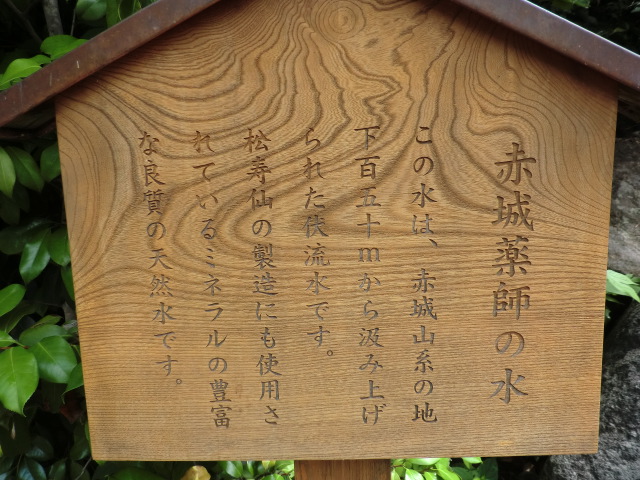 赤城薬師の水
この水は、赤城山系の地
下百五十mから汲み上げ
られた伏流水です。
松寿仙の製造にも使用さ
れているミネラルの豊富
な良質の天然水です。